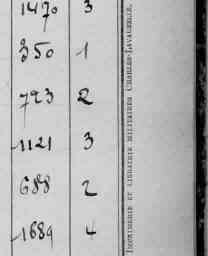 1470 3
350 1
723 2
1121 3
688 2
1689 4
IMPRIMERIE ET LIBRAIRIE MILITAIRES CHARLES-LAVAUZELLE.